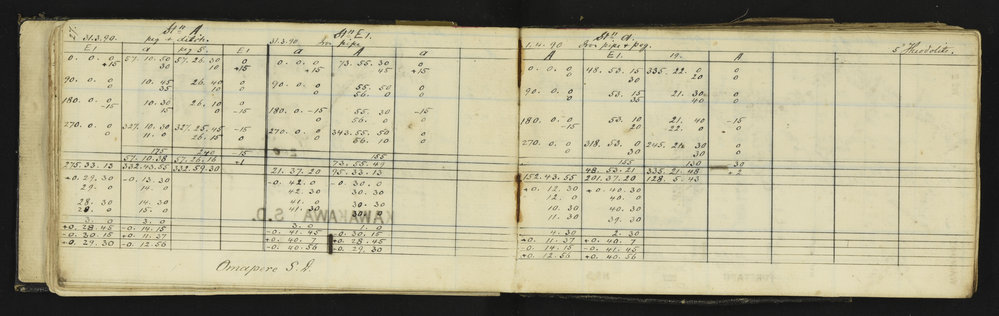 31.3.90. Stn A
peg + ditto
E1 a peg 5. E1
0. 0. 0 57. 10. 50 57. 26. 30 0
+15 30 10 +15
90. 0. 0 10. 45 26. 40 0
0 35 10 0
180. 0. 0 10. 30 26. 10 0
-15 15 0 -15
270. 0. 0 327. 10. 30 327. 25. 45 -15
0 11. 0 26. 15 0
175 240 -15
57. 10. 38 57. 26. 16 +1
275. 33. 13 332. 43. 55 332. 59. 30
+0. 29. 30 -0. 13. 30
29. 0 14. 0
28. 30 14. 30
28. 0 15. 0
3. 0 3. 0
+0. 28. 45 -0. 14. 15
-0. 30. 15 +0. 11. 37
+0. 29. 30 -0. 12. 56
Omapere S.D.
31.3.90 Stn E1.
Iron pipe
a A a
0. 0. 0 73. 55. 30 0
+15 45 +15
90. 0. 0 55. 50 0
0 56. 0 0
180. 0. -15 55. 30 -15
0 56. 0 0
270. 0. 0 343. 55. 50 0
0 56. 10 0
155
73. 55. 49
21. 37. 20 95. 33. 13
-0. 42. 0 -0. 30. 0
42. 30 30. 30
41. 0
41. 30
3. 0
-0. 41. 45 -0. 30. 15
+0. 40. 7 +0. 28. 45
-0. 40. 56 -0. 29. 30
KAWAKAWA S.D.
1.4.90 Stn a.
Iron pipe + peg.
5" Theodolite.
A E1. 19. A
0. 0. 0 48. 53. 15 335. 22. 0 0
0 30 20 0
90. 0. 0 53. 15 21. 30 0
0 35 40 0
180. 0. 0 53. 10 21. 40 -15
-15 20 -22. 0 0
270. 0. 0 318. 53. 0 245. 21. 30 0
0 30 30 0
155 130 -30
48. 53. 21 335. 21. 48 +2
152. 43. 55 201. 37. 20 128. 5. 43
+0. 12. 30 +0. 40. 30
12. 0 40. 0
10. 30 40. 30
11. 30 39. 30
4. 30 2. 30
+0. 11. 37 +0. 40. 7
-0. 14. 15 -0. 41. 45
+0. 12. 56 +0. 40. 56